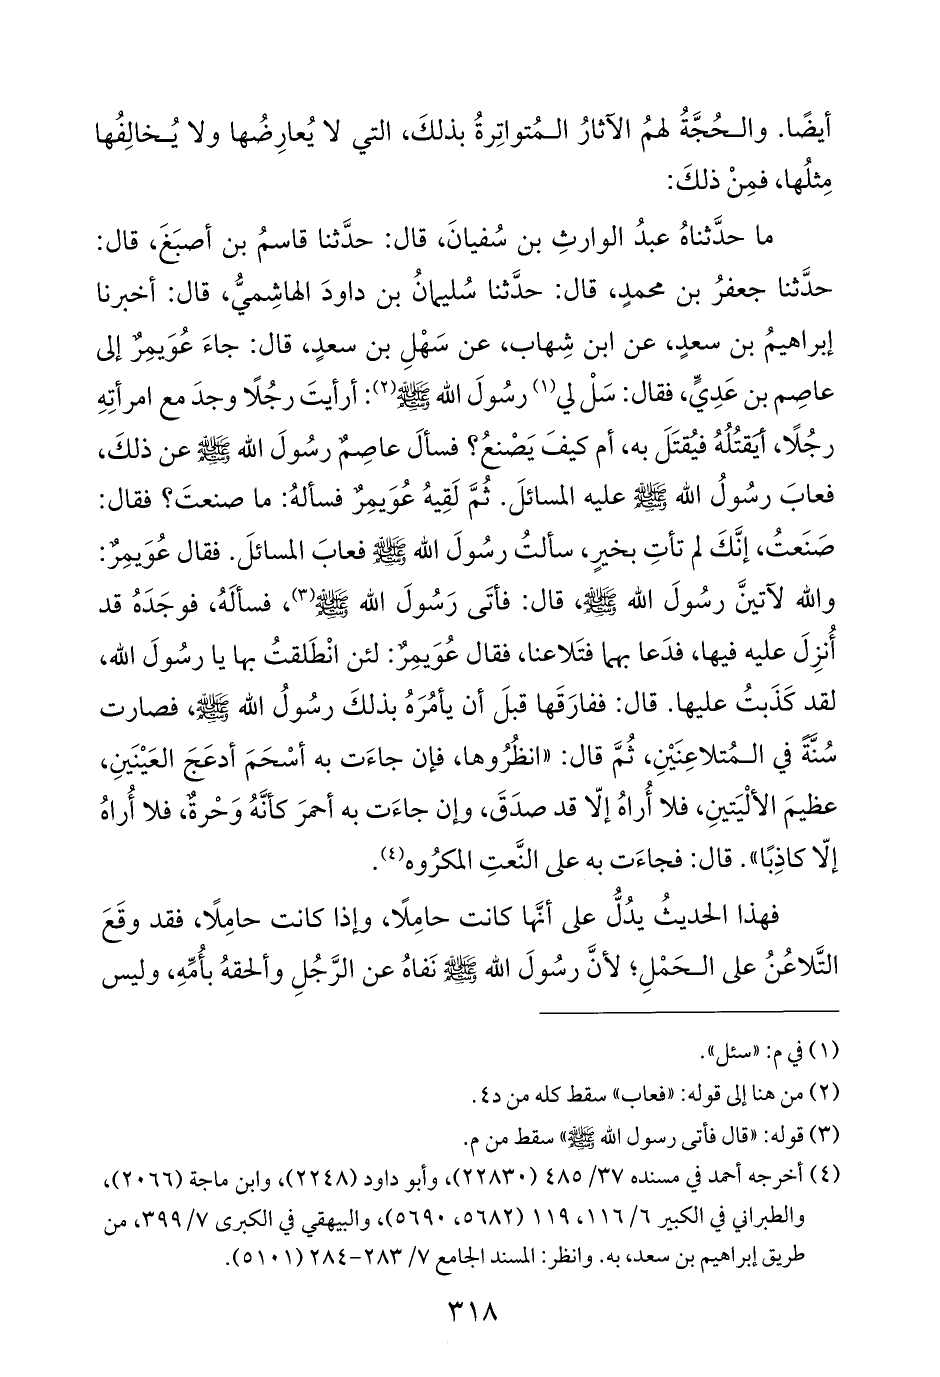 أيضًا. والـحُجَّةُ لهمُ الآثارُ الـمُتواتِرةُ بذلكَ، التي لا يُعارِضُها ولا يُـخالِفُها
مِثلُها، فمِنْ ذلكَ:
ما حدَّثناهُ عبدُ الوارثِ بن سُفيانَ، قال: حدَّثنا قاسمُ بن أصبَغَ، قال:
حدَّثنا جعفرُ بن محمدٍ، قال: حدَّثنا سُليمانُ بن داودَ الهاشِميُّ، قال: أخبرنا
إبراهيمُ بن سعدٍ، عن ابن شِهاب، عن سَهْلِ بن سعدٍ، قال: جاءَ عُوَيمِرٌ إلى
عاصِم بن عَدِيٍّ، فقال: سَلْ لي(١) رسُولَ الله ﷺ(٢): أرأيتَ رجُلًا وجدَ مع امرأتِهِ
رجُلًا، أيَقتُلُهُ فيُقتَلَ به، أم كيفَ يَصْنعُ؟ فسألَ عاصِمٌ رسُولَ الله ﷺ عن ذلكَ،
فعابَ رسُولُ الله ﷺ عليه المسائلَ. ثُمَّ لَقِيهُ عُوَيمِرٌ فسألهُ: ما صنعتَ؟ فقال:
صَنَعتُ، إنَّكَ لم تأتِ بخيرٍ، سألتُ رسُولَ الله ﷺ فعابَ المسائلَ. فقال عُوَيمِرٌ:
والله لآتينَّ رسُولَ الله ﷺ، قال: فأتَى رَسُولَ الله ﷺ(٣)، فسألَهُ، فوجَدَهُ قد
أُنزِلَ عليه فيها، فدَعا بهما فتَلاعنا، فقال عُوَيمِرٌ: لئن انْطَلقتُ بها يا رسُولَ الله،
لقد كَذَبتُ عليها. قال: ففارَقَها قبلَ أن يأمُرَهُ بذلكَ رسُولُ الله ﷺ، فصارت
سُنَّةً في الـمُتلاعِنَيْنِ، ثُمَّ قال: «انظُرُوها، فإن جاءَت به أسْحَمَ أدعَجَ العَيْنَينِ،
عظيمَ الألْيَتينِ، فلا أُراهُ إلّا قد صدَقَ، وإن جاءَت به أحمرَ كأنَّهُ وَحْرةٌ، فلا أُراهُ
إلّا كاذِبًا». قال: فجاءَت به على النَّعتِ المكرُوه(٤).
فهذا الحديثُ يدُلُّ على أنَّها كانت حامِلًا، وإذا كانت حامِلًا، فقد وقَعَ
التَّلاعُنُ على الـحَمْلِ؛ لأنَّ رسُولَ الله ﷺ نَفاهُ عن الرَّجُلِ وألحقهُ بأُمِّهِ، وليس
(١) في م: «سئل».
(٢) من هنا إلى قوله: «فعاب» سقط كله من د٤.
(٣) قوله: «قال فأتى رسول الله ﷺ» سقط من م.
(٤) أخرجه أحمد في مسنده ٣٧/ ٤٨٥ (٢٢٨٣٠)، وأبو داود (٢٢٤٨)، وابن ماجة (٢٠٦٦)،
والطبراني في الكبير ٦/ ١١٦، ١١٩ (٥٦٨٢، ٥٦٩٠)، والبيهقي في الكبرى ٧/ ٣٩٩، من
طريق إبراهيم بن سعد، به. وانظر: المسند الجامع ٧/ ٢٨٣-٢٨٤ (٥١٠١).
٣١٨